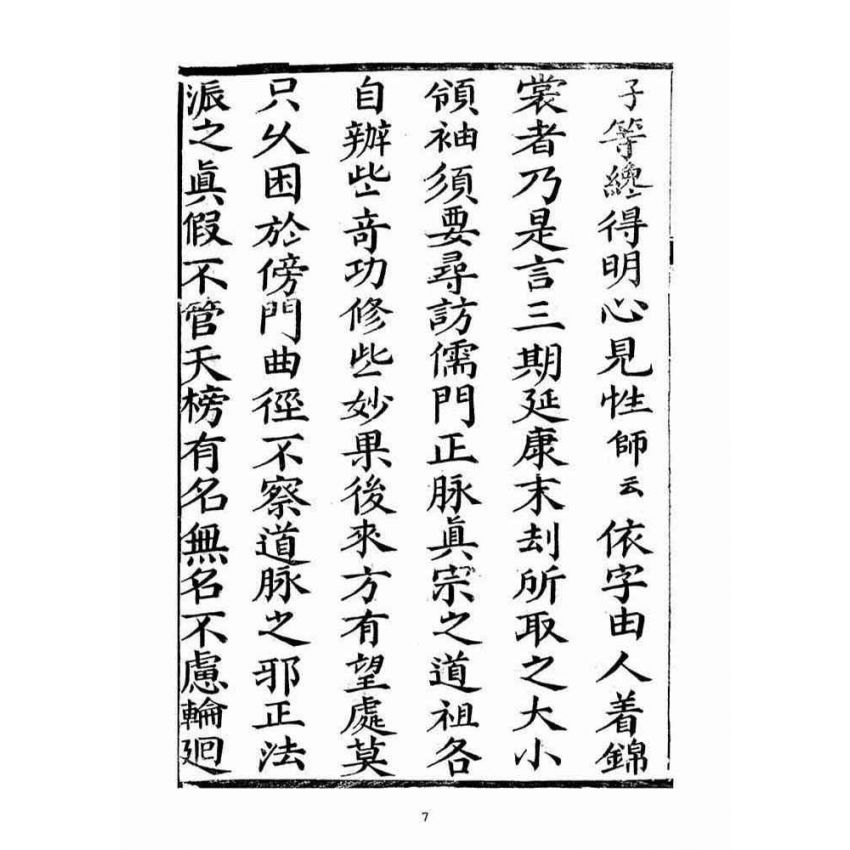 子等纔得明心見性師云依字由人着錦
裳者乃是言三期延康末刦所取之大小
領袖須要尋訪儒門正脉眞宗之道祖各
自辦些竒功修些妙果後來方有望處莫
只乆困於傍門曲徑不察道脉之邪正法
派之眞假不管天榜有名無名不慮輪廻
7